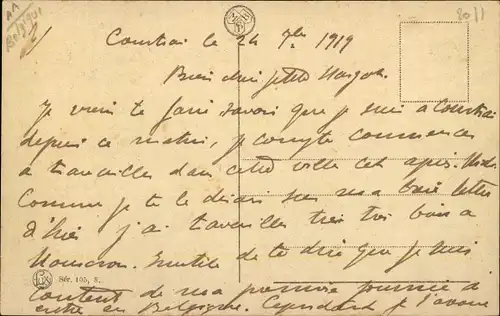 AA
Belgique
20 11
Courtrai le 24 7bre 1919
Bien chère petite
Je viens te faire savoir que je suis à Courtrai
depuis ce matin, je compte commencer
à travailler dans cette ville cet après-midi.
Comme je te le disais sur ma lettre
d'hier j'ai travaillé très très bien à
Mouscron. Inutile de te dire que je suis
content de ma première journée
en Belgique. Cependant je t'avoue
Sér. 105, 8.